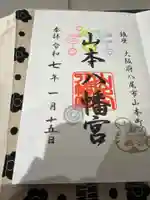 鎮座 大阪府八尾市山本町
山本八幡宮
奉拝 令和七年一月十五日